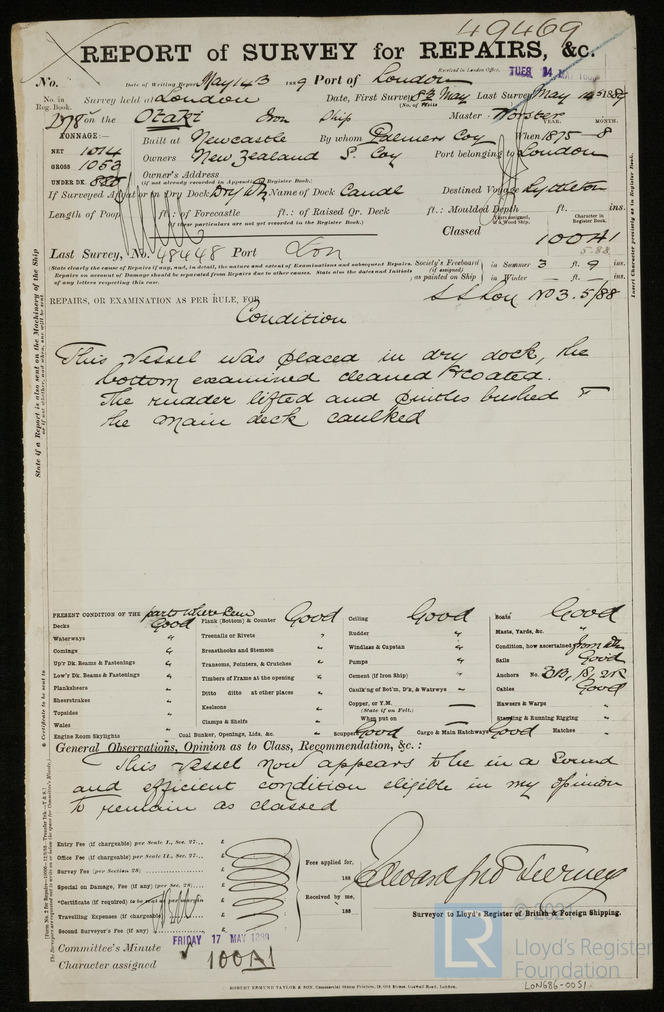 49469
REPORT of SURVEY for REPAIRS, &c.
No. Date of Writing Report May 14th 1889 Port of London Received in London Office, TUES 14
No. in Reg. Book. Survey held at London Date, First Survey 8th May Last Survey May 14 1889
(No. of Visits
278 on the Otaki Iron Ship Master Worster
TONNAGE:— Built at Newcastle By whom Palmers Coy When 1875 YEAR. MONTH. 8
NET 1014
GROSS 1053 Owners New Zealand S. Coy Port belonging to London
UNDER DK. Owner's Address
(if not already recorded in Appendix Register Book.)
If Surveyed Afloat or in Dry Dock Dry Dk Name of Dock Canal Destined Voyage Lyttleton
Length of Poop ft.: of Forecastle ft.: of Raised Qr. Deck ft.: Moulded Depth ft. ins.
(If these particulars are not yet recorded in the Register Book.)
Years assigned, if a Wood Ship. Character in Register Book.
Classed 100A1
5.88
Last Survey, No. 48448 Port Lon
(State clearly the cause of Repairs if any, and, in detail, the nature and extent of Examinations and subsequent Repairs. Repairs on account of Damage should be separated from Repairs due to other causes. State also the dates and Initials of any letters respecting this case.
Society's Freeboard (if assigned) as painted on Ship in Summer 3 ft. 9 ins.
in Winter — ft. — ins.
SSLon No 3. 5/88
REPAIRS, OR EXAMINATION AS PER RULE, FOR
Condition
This Vessel was placed in dry dock, the
bottom examined cleaned & coated.
The rudder lifted and pintles bushed &
the main deck caulked
State if a Report is also sent on the Machinery of the Ship
Insert Character precisely as in Register Book.
PRESENT CONDITION OF THE parts where seen
Decks Good
Waterways "
Comings "
Up'r Dk. Beams & Fastenings "
Low'r Dk. Beams & Fastenings "
Planksheers "
Sheerstrakes "
Topsides "
Wales "
Engine Room Skylights
Plank (Bottom) & Counter Good
Treenails or Rivets "
Breasthooks and Stemson "
Transoms, Pointers, & Crutches "
Timbers of Frame at the opening "
Ditto ditto at other places "
Keelsons "
Clamps & Shelfs "
Coal Bunker, Openings, Lids, &c. "
Ceiling Good
Rudder "
Windlass & Capstan "
Pumps "
Cement (if Iron Ship) "
Caulk'ng of Bot'm, D'k, & Watrwys "
Copper, or Y.M. —
(State if on Felt.)
When put on —
Scuppers Good Cargo & Main Hatchways Good
Boats Good
Masts, Yards, &c. "
Condition, how ascertained from Dk
Sails Good
Anchors No. 3B, 1S, 2K
Cables Good
Hawsers & Warps "
Standing & Running Rigging "
Hatches "
General Observations, Opinion as to Class, Recommendation, &c.:
This Vessel now appears to be in a Sound
and efficient condition eligible in my opinion
to remain as classed
Entry Fee (if chargeable) per Scale I., Sec. 27 £
Office Fee (if chargeable) per Scale II., Sec. 27 £
Survey Fee (per Section 28) £
Special on Damage, Fee (if any) (per Sec. 28) £
*Certificate (if required) to be sent as per margin
Travelling Expenses (if chargeable) £
Second Surveyor's Fee (if any) £
Fees applied for, 188
Received by me, 188
Edward Jno Tierney
Surveyor to Lloyd's Register of British & Foreign Shipping.
Committee's Minute FRIDAY 17 MAY 1889
Character assigned 100A1
ROBERT EDMUND TAYLOR & SON, Commercial Steam Printers, 19, Old Street, Goswell Road, London.
© 2021
LR
Lloyd's Register
Foundation
LON686-0051